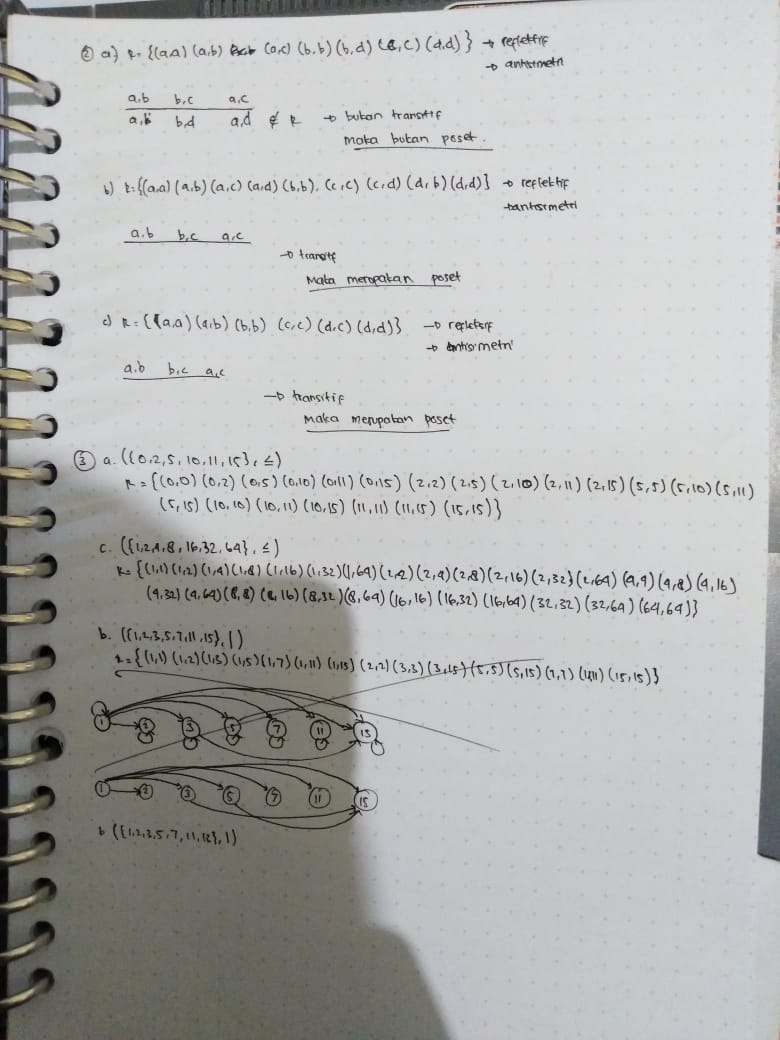 ② a) R = {(a,a) (a,b) (a,c) (b,b) (b,d) (c,c) (d,d)} → reflektif
→ antisimetri
a,b b,c a,c
a,b b,d a,d ∉ R → bukan transitif
Maka bukan poset.
b) R = {(a,a) (a,b) (a,c) (a,d) (b,b), (c,c) (c,d) (d,b) (d,d)} → reflektif
→ antisimetri
a,b b,c a,c
→ transitif
Maka merupakan poset
c) R = {(a,a) (a,b) (b,b) (c,c) (d,c) (d,d)} → reflektif
→ antisimetri
a,b b,c a,c
→ transitif
Maka merupakan poset
③ a. ({0,2,5,10,11,15}, ≤)
R = {(0,0) (0,2) (0,5) (0,10) (0,11) (0,15) (2,2) (2,5) (2,10) (2,11) (2,15) (5,5) (5,10) (5,11)
(5,15) (10,10) (10,11) (10,15) (11,11) (11,15) (15,15)}
c. ({1,2,4,8,16,32,64}, ≤)
R = {(1,1) (1,2) (1,4) (1,8) (1,16) (1,32) (1,64) (2,2) (2,4) (2,8) (2,16) (2,32) (2,64) (4,4) (4,8) (4,16)
(4,32) (4,64) (8,8) (8,16) (8,32) (8,64) (16,16) (16,32) (16,64) (32,32) (32,64) (64,64)}
b. ({1,2,3,5,7,11,15}, |)
R = {(1,1) (1,2) (1,3) (1,5) (1,7) (1,11) (1,15) (2,2) (3,3) (3,15) (5,5) (5,15) (7,7) (11,11) (15,15)}
1 2 3 5 7 11 15
1 2 3 5 7 11 15
b ({1,2,3,5,7,11,15}, |)